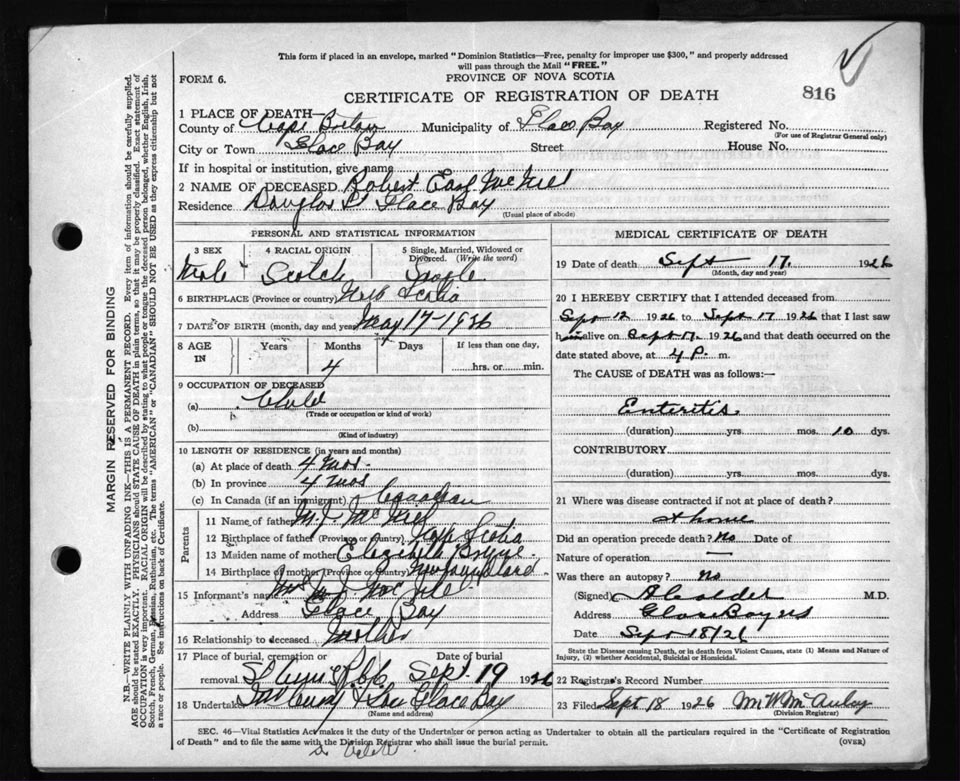 This form if placed in an envelope, marked "Dominion Statistics—Free, penalty for improper use $300," and properly addressed
will pass through the Mail "FREE."
FORM 6.
PROVINCE OF NOVA SCOTIA
816
CERTIFICATE OF REGISTRATION OF DEATH
1 PLACE OF DEATH—
County of Cape Breton Municipality of Glace Bay Registered No.
(For use of Registrar General only)
City or Town Glace Bay Street House No.
If in hospital or institution, give name
2 NAME OF DECEASED Robert Earl McNeil
Residence Douglas St Glace Bay
(Usual place of abode)
PERSONAL AND STATISTICAL INFORMATION
3 SEX 4 RACIAL ORIGIN 5 Single, Married, Widowed or
Divorced. (Write the word)
Male Scotch Single
6 BIRTHPLACE (Province or country) Nova Scotia
7 DATE OF BIRTH (month, day and year) May 17-1926
8 AGE IN Years Months Days If less than one day,
4 hrs. or min.
9 OCCUPATION OF DECEASED
(a) Child
(Trade or occupation or kind of work)
(b)
(Kind of industry)
10 LENGTH OF RESIDENCE (in years and months)
(a) At place of death 4 mos.
(b) In province 4 mos
(c) In Canada (if an immigrant) Canadian
Parents
11 Name of father M. J. McNeil
12 Birthplace of father (Province or Country) Nova Scotia
13 Maiden name of mother Elizabeth
14 Birthplace of mother (Province or Country) Newfoundland
15 Informant's name Mrs M. J. McNeil
Address Glace Bay
16 Relationship to deceased Mother
17 Place of burial, cremation or Date of burial
removal Sept. 19 1926
18 Undertaker Glace Bay
(Name and address)
MEDICAL CERTIFICATE OF DEATH
19 Date of death Sept 17. 1926
(Month, day and year)
20 I HEREBY CERTIFY that I attended deceased from
Sept 12 1926 to Sept 17 1926 that I last saw
him alive on Sept 17. 1926 and that death occurred on the
date stated above, at 4 P. m.
The CAUSE of DEATH was as follows:—
Enteritis
(duration) yrs. mos. 10 dys.
CONTRIBUTORY
(duration) yrs. mos. dys.
21 Where was disease contracted if not at place of death?
At home
Did an operation precede death? No Date of
Nature of operation —
Was there an autopsy? No
(Signed) M.D.
Address Glace Bay NS
Date Sept 18/26
State the Disease causing Death, or in death from Violent Causes, state (1) Means and Nature of
Injury, (2) whether Accidental, Suicidal or Homicidal.
22 Registrar's Record Number
23 Filed Sept 18 1926 McAuley
(Division Registrar)
SEC. 46—Vital Statistics Act makes it the duty of the Undertaker or person acting as Undertaker to obtain all the particulars required in the "Certificate of Registration
of Death" and to file the same with the Division Registrar who shall issue the burial permit. (OVER)
MARGIN RESERVED FOR BINDING
N.B.—WRITE PLAINLY WITH UNFADING INK—THIS IS A PERMANENT RECORD. Every item of information should be carefully supplied.
AGE should be stated EXACTLY. PHYSICIANS should STATE CAUSE OF DEATH in plain terms, so that it may be properly classified. Exact statement of
OCCUPATION is very important. RACIAL ORIGIN will be described by stating to what people or tongue the deceased person belonged, whether English, Irish,
Scotch, French, German, Russian, Ruthenian, etc. The terms "AMERICAN" or "CANADIAN" SHOULD NOT BE USED as they express citizenship but not
a race or people. See instructions on back of Certificate.